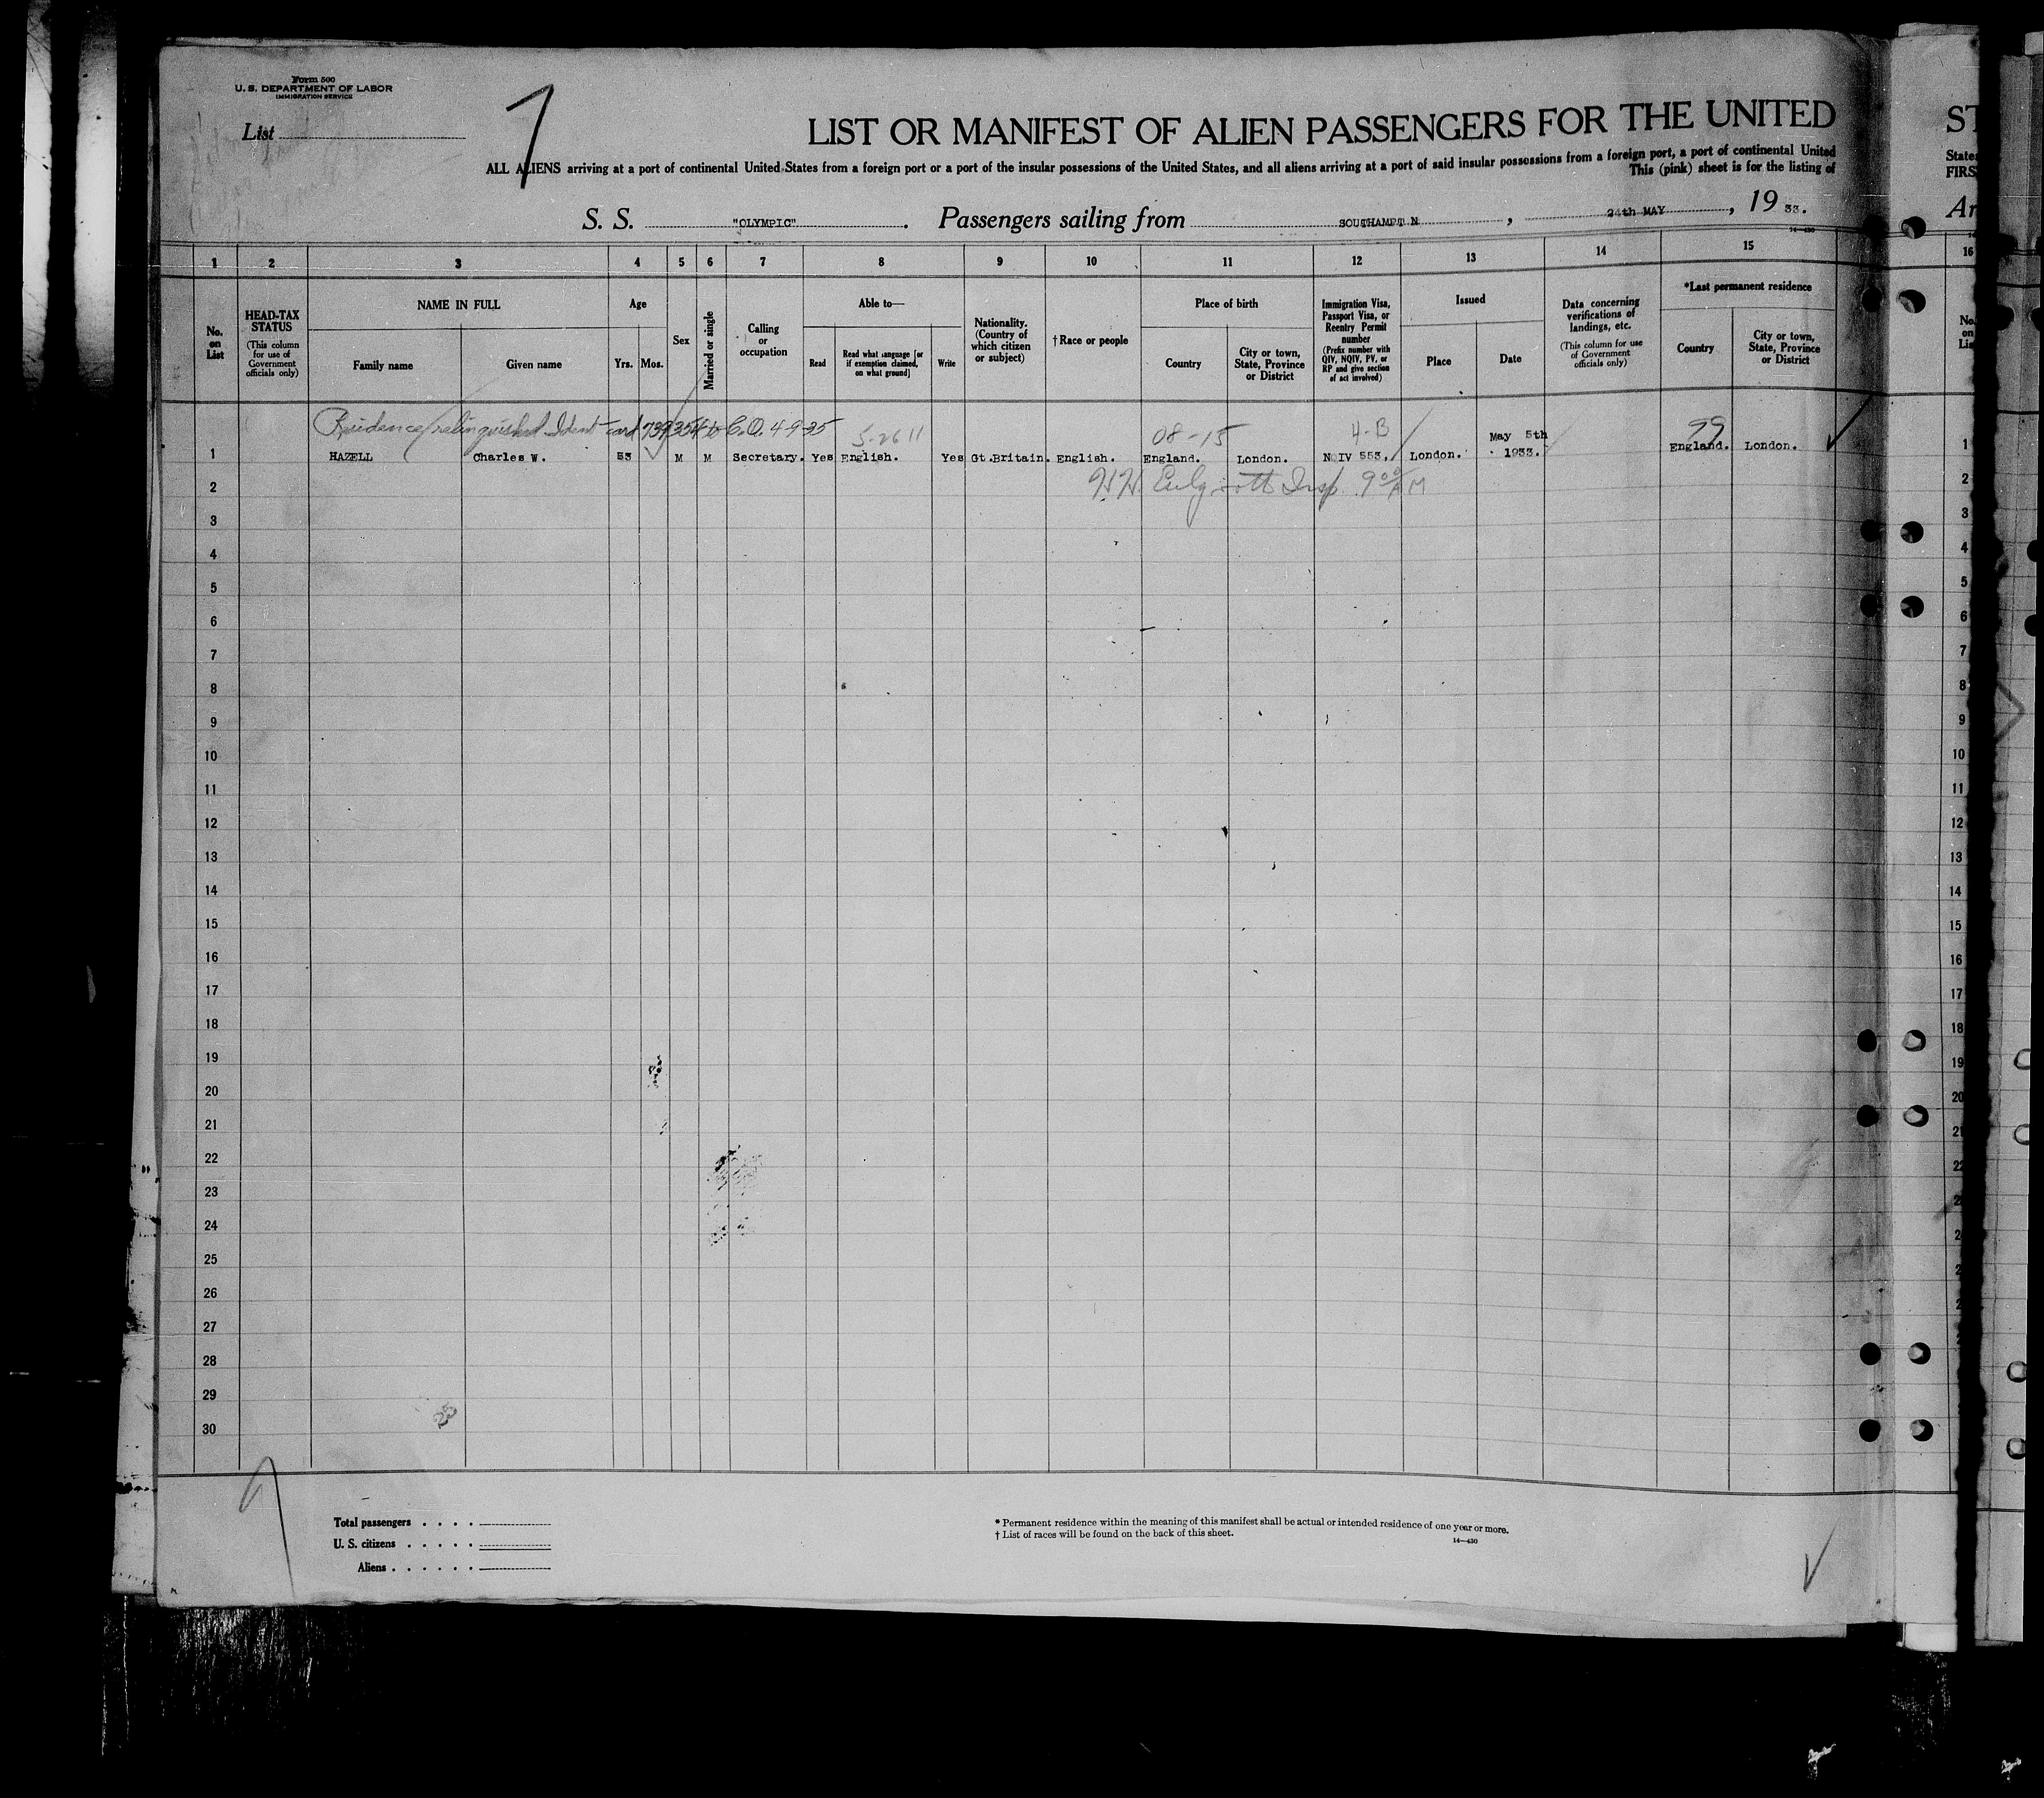 Form 500
U. S. DEPARTMENT OF LABOR
IMMIGRATION SERVICE
List
7
LIST OR MANIFEST OF ALIEN PASSENGERS FOR THE UNITED
ALL ALIENS arriving at a port of continental United States from a foreign port or a port of the insular possessions of the United States, and all aliens arriving at a port of said insular possessions from a foreign port, a port of continental United
This (pink) sheet is for the listing of
S. S. "OLYMPIC". Passengers sailing from SOUTHAMPT N, 24th MAY, 19 33.
14—430
1 2 3 4 5 6 7 8 9 10 11 12 13 14 15
No. on List
HEAD-TAX STATUS (This column for use of Government officials only)
NAME IN FULL
Family name
Given name
Age
Yrs. Mos.
Sex
Married or single
Calling or occupation
Able to—
Read
Read what language [or if exemption claimed, on what ground]
Write
Nationality. (Country of which citizen or subject)
†Race or people
Place of birth
Country
City or town, State, Province or District
Immigration Visa, Passport Visa, or Reentry Permit number (Prefix number with QIV, NQIV, PV, or RP and give section of act involved)
Issued
Place
Date
Data concerning verifications of landings, etc. (This column for use of Government officials only)
*Last permanent residence
Country
City or town, State, Province or District
Residence relinquished Ident card 739354 to C.O. 4-9-35
5-2611 08-15 4-B 99
1 HAZELL Charles W. 53 M M Secretary. Yes English. Yes Gt.Britain. English. England. London. NQIV 553. London. May 5th 1933. England. London.
Insp. 9 00 AM
2
3
4
5
6
7
8
9
10
11
12
13
14
15
16
17
18
19
20
21
22
23
24
25
26
27
28
29
30
25
Total passengers
U. S. citizens
Aliens
* Permanent residence within the meaning of this manifest shall be actual or intended residence of one year or more.
† List of races will be found on the back of this sheet.
14—430
ST
States
FIRS
Ar
16
No. on Lis
1
2
3
4
5
6
7
8
9
10
11
12
13
14
15
16
17
18
19
20
21
22